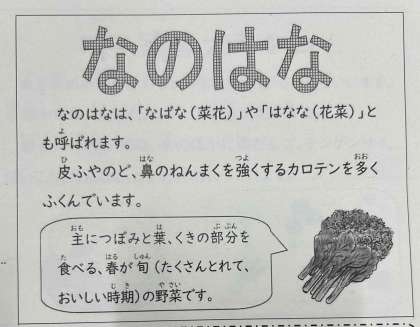 なのはな
なのはなは、「なばな(菜花)」や「はなな(花菜)」と
も呼ばれます。
皮ふやのど、鼻のねんまくを強くするカロテンを多く
ふくんでいます。
主につぼみと葉、くきの部分を
食べる、春が旬(たくさんとれて、
おいしい時期)の野菜です。